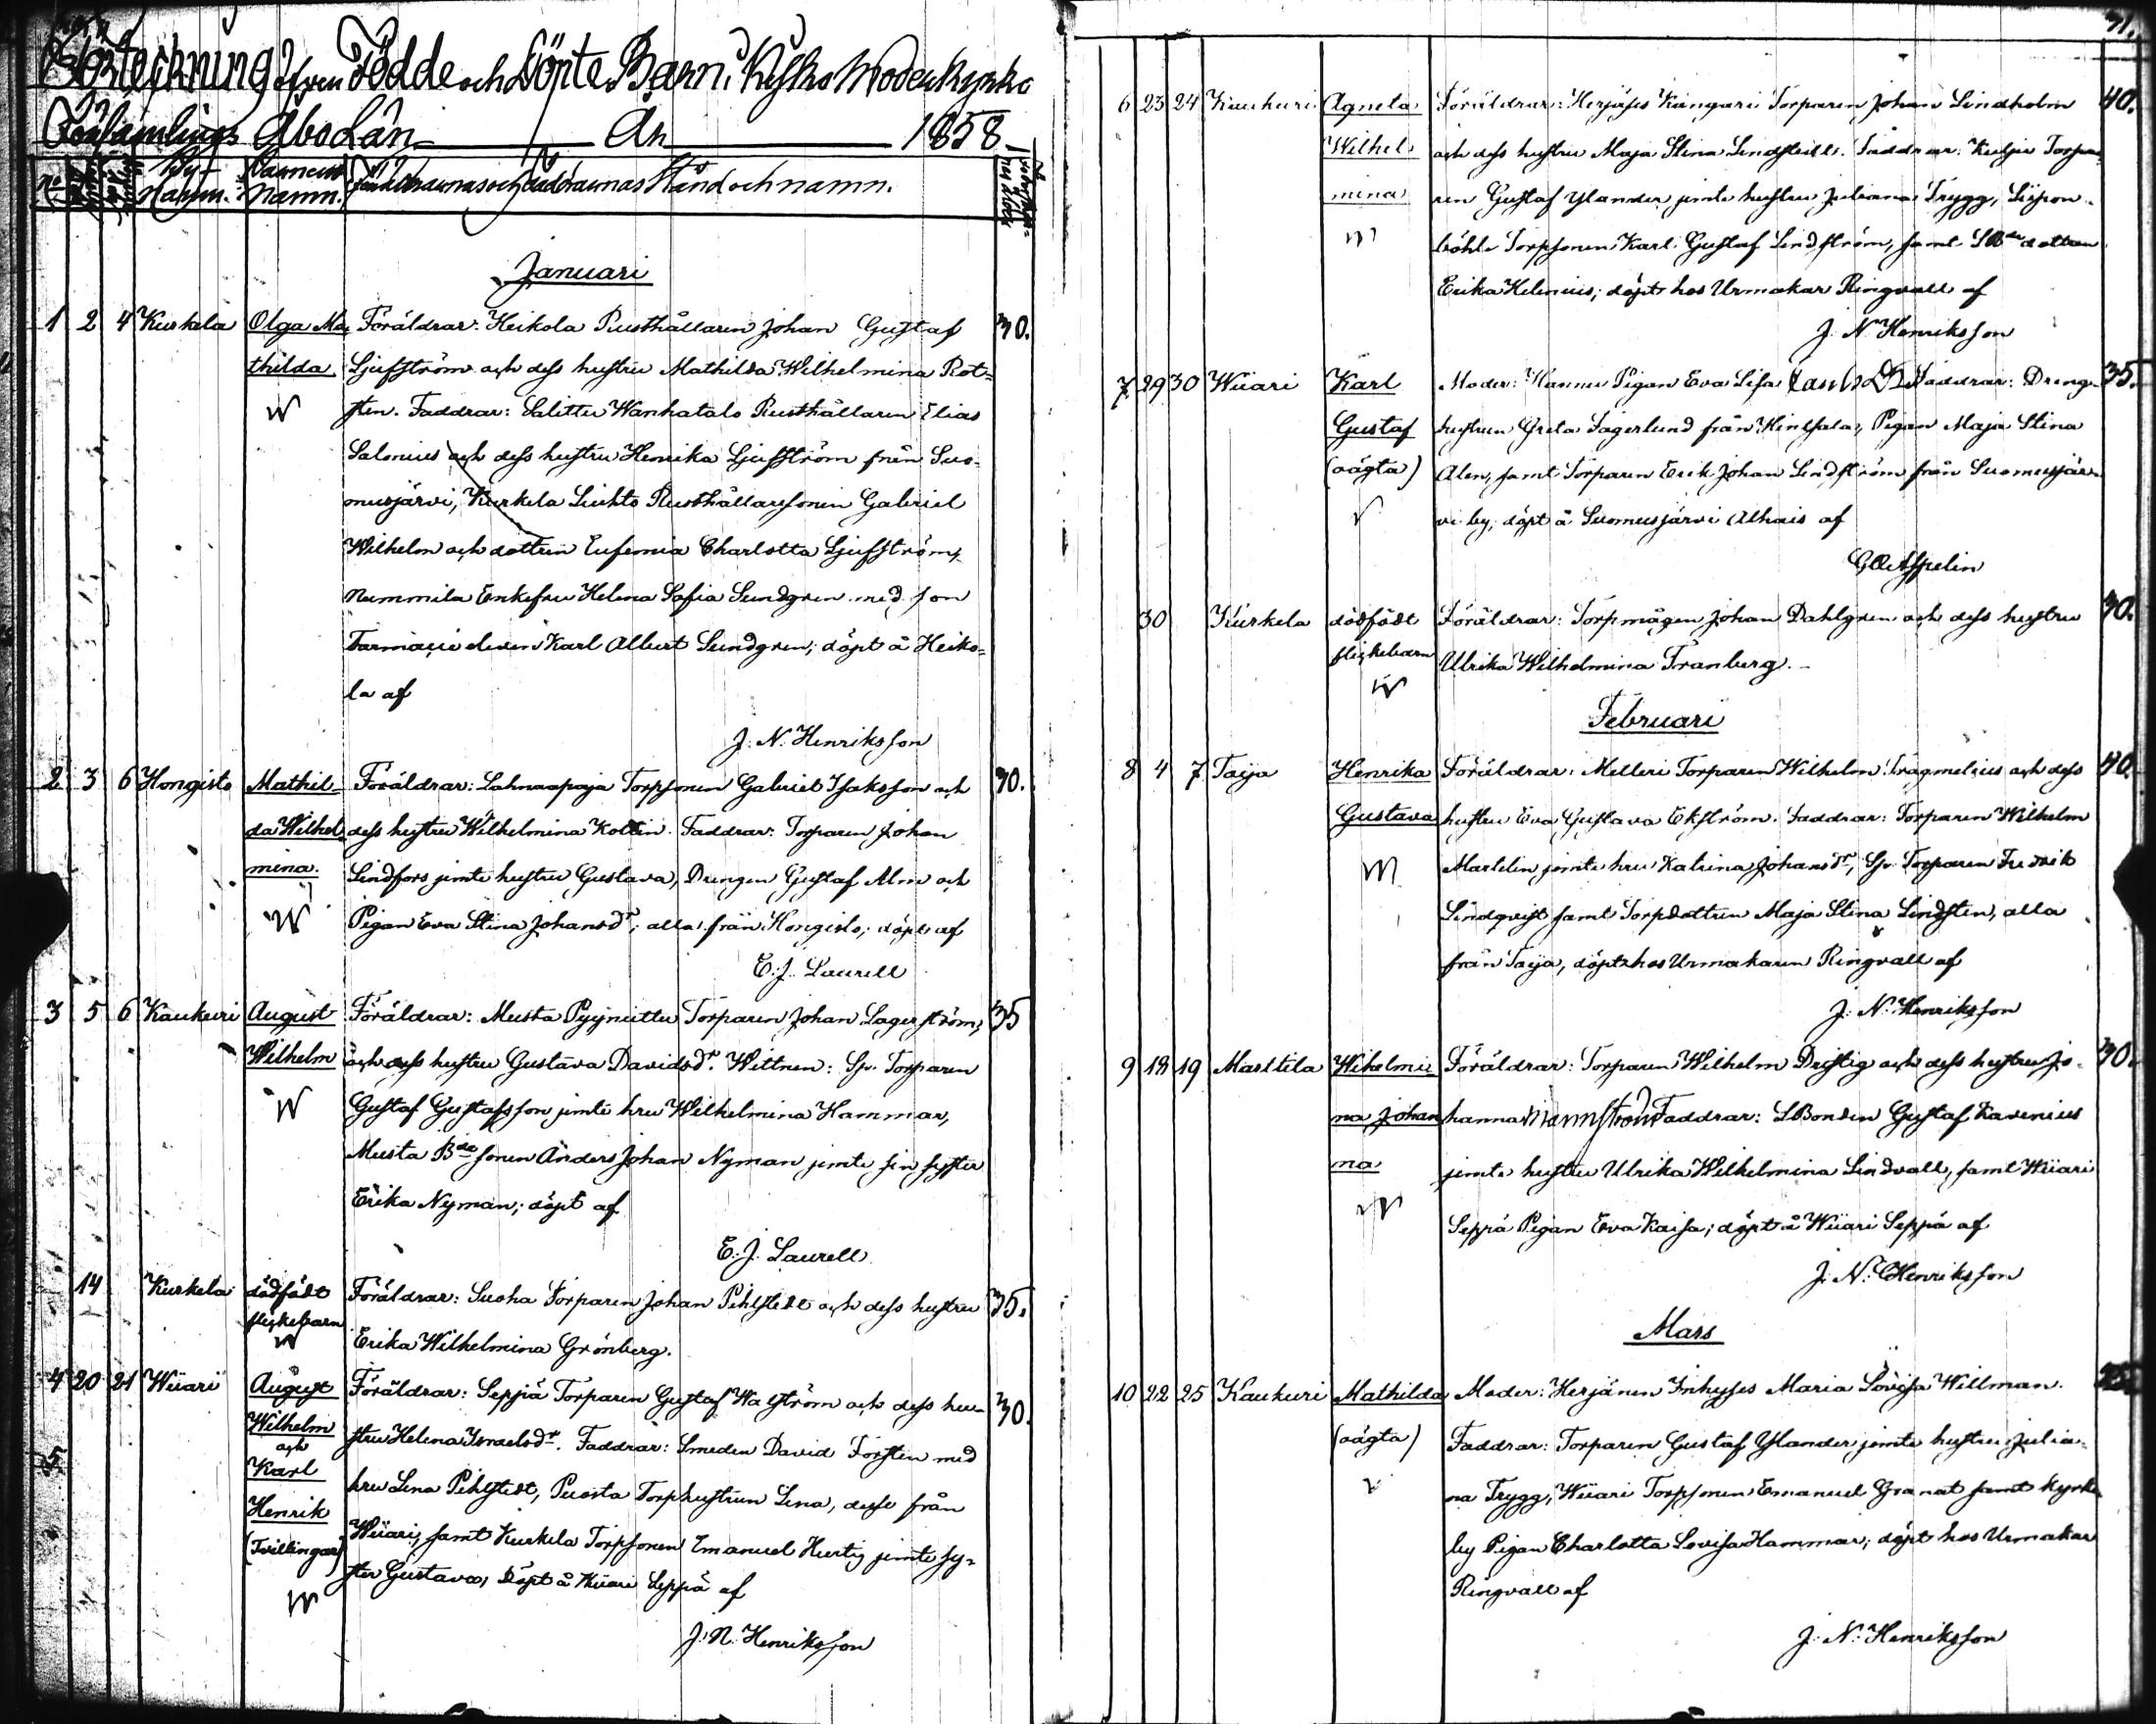 Förteckning öfver Födde och Döpte Barn i Kisko Moderkyrko
Församlings Åbo Län År 1858
No By Namn. Barnens Namn. Föräldrarnas och Faddrarnas Stånd och namn.
Januari
1 2 4 Kurkela Olga Ma Föräldrar: Heikola Rusthållaren Johan Gustaf 30.
thilda. Ljufström och dess hustru Mathilda Wilhelmina Rot=
sten. Faddrar: Salittu Wanhatalo Rusthållaren Elias
Salonius och dess hustru Henrika Ljufström från Suo-
musjärvi, Kurkela Liuhto Rusthållaresonen Gabriel
Wilhelm och dottren Eufemia Charlotta Ljufström,
Nummila Enkefru Helena Sofia Sundgren med son
Farmacie eleven Karl Albert Sundgren; döpt å Heiko=
la af
J. N. Henriksson
2 3 6 Hongisto Mathil- Föräldrar: Lahnapaja Torpsonen Gabriel Isaksson och 30.
da Wilhel dess hustru Wilhelmina Kollin. Faddrar: Torparen Johan
mina. Lindfors jemte hustru Gustava, Drengen Gustaf Alm och
Pigan Eva Stina Johansdr, alla från Hongisto; döpt af
E. J. Laurell
3 5 6 Kaukuri August Föräldrar: Musta Pyynittu Torparen Johan Lagerström, 35
Wilhelm och dess hustru Gustava Davidsdr. Wittnen: Sp. Torparen
Gustaf Gustafsson jemte hru Wilhelmina Hammar,
Musta Bde sonen Anders Johan Nyman jemte sin syster
Erika Nyman; döpt af
E. J. Laurell
14 Kurkela dödfödt Föräldrar: Suoha Torparen Johan Pihlstedt och dess hustru 35.
flickebarn Erika Wilhelmina Grönberg.
4 20 21 Wiiari August Föräldrar: Seppä Torparen Gustaf Wallström och dess hu- 30.
Wilhelm stru Helena Israelsdr. Faddrar: Smeden David Forsten med
och
5 Karl hru Lena Pihlstedt, Puosta Torphustrun Lena, desse från
Henrik Wiiari, samt Kurkela Torpsonen Emanuel Hurtig jemte sy-
(Tvillingar) ster Gustava, döpt å Wiiari Seppä af
J. N. Henriksson
31.
6 23 24 Kaukuri Agneta Föräldrar: Herjäses Kangari Torparen Johan Lindholm 40.
Wilhel och dess hustru Maja Stina Lindstedt. Faddrar: Torpa
mina ren Gustaf Ylander jemte hustru Juliana Trygg, Lispon-
böhle Torpsonen Karl Gustaf Lindström, samt dottren
Erika Helenius; döpt hos Urmakar Ringvall af
J. N. Henriksson
7 29 30 Wiiari Karl Moder: Hannu Pigan Eva Lisa Faddrar: Dreng- 35.
Gustaf hustrun Greta Fagerlund från Hintsala, Pigan Maja Stina
(oägta) Alen, samt Torparen Erik Johan Lindström från Suomusjär-
vi by, döpt å Suomusjärvi Alhais af
G. A. Aspelin
30 Kurkela dödfödt Föräldrar: Torpmågen Johan Dahlgren och dess hustru 30.
flickebarn Ulrika Wilhelmina Franberg.
Februari
8 4 7 Taija Henrika Föräldrar: Melleri Torparen Wilhelm Fragmelius och dess 40.
Gustava hustru Eva Gustava Ekström. Faddrar: Torparen Wilhelm
Martelin jemte hru Katrina Johansdr, Sp. Torparen Fredrik
Lindqvist samt Torpdottren Maja Stina Lindsten, alla
från Taija, döpt hos Urmakaren Ringvall af
J. N. Henriksson
9 18 19 Marttila Wihelmi Föräldrar: Torparen Wilhelm Dristig och dess hustru Jo- 30.
na Johan hanna Mannström Faddrar: L Bonden Gustaf Kavenius
na jemte hustru Ulrika Wilhelmina Lindvall, samt Wiiari
Seppä Pigan Eva Kaisa; döpt å Wiiari Seppä af
J. N. Henriksson
Mars
10 22 25 Kaukuri Mathilda Moder: Herjänen Inhyses Maria Lovisa Willman.
(oägta) Faddrar: Torparen Gustaf Ylander jemte hustru Julia-
na Trygg, Wiiari Torpsonen Emanuel Granat samt Kyrko
by Pigan Charlotta Lovisa Hammar; döpt hos Urmakar
Ringvall af
J. N. Henriksson